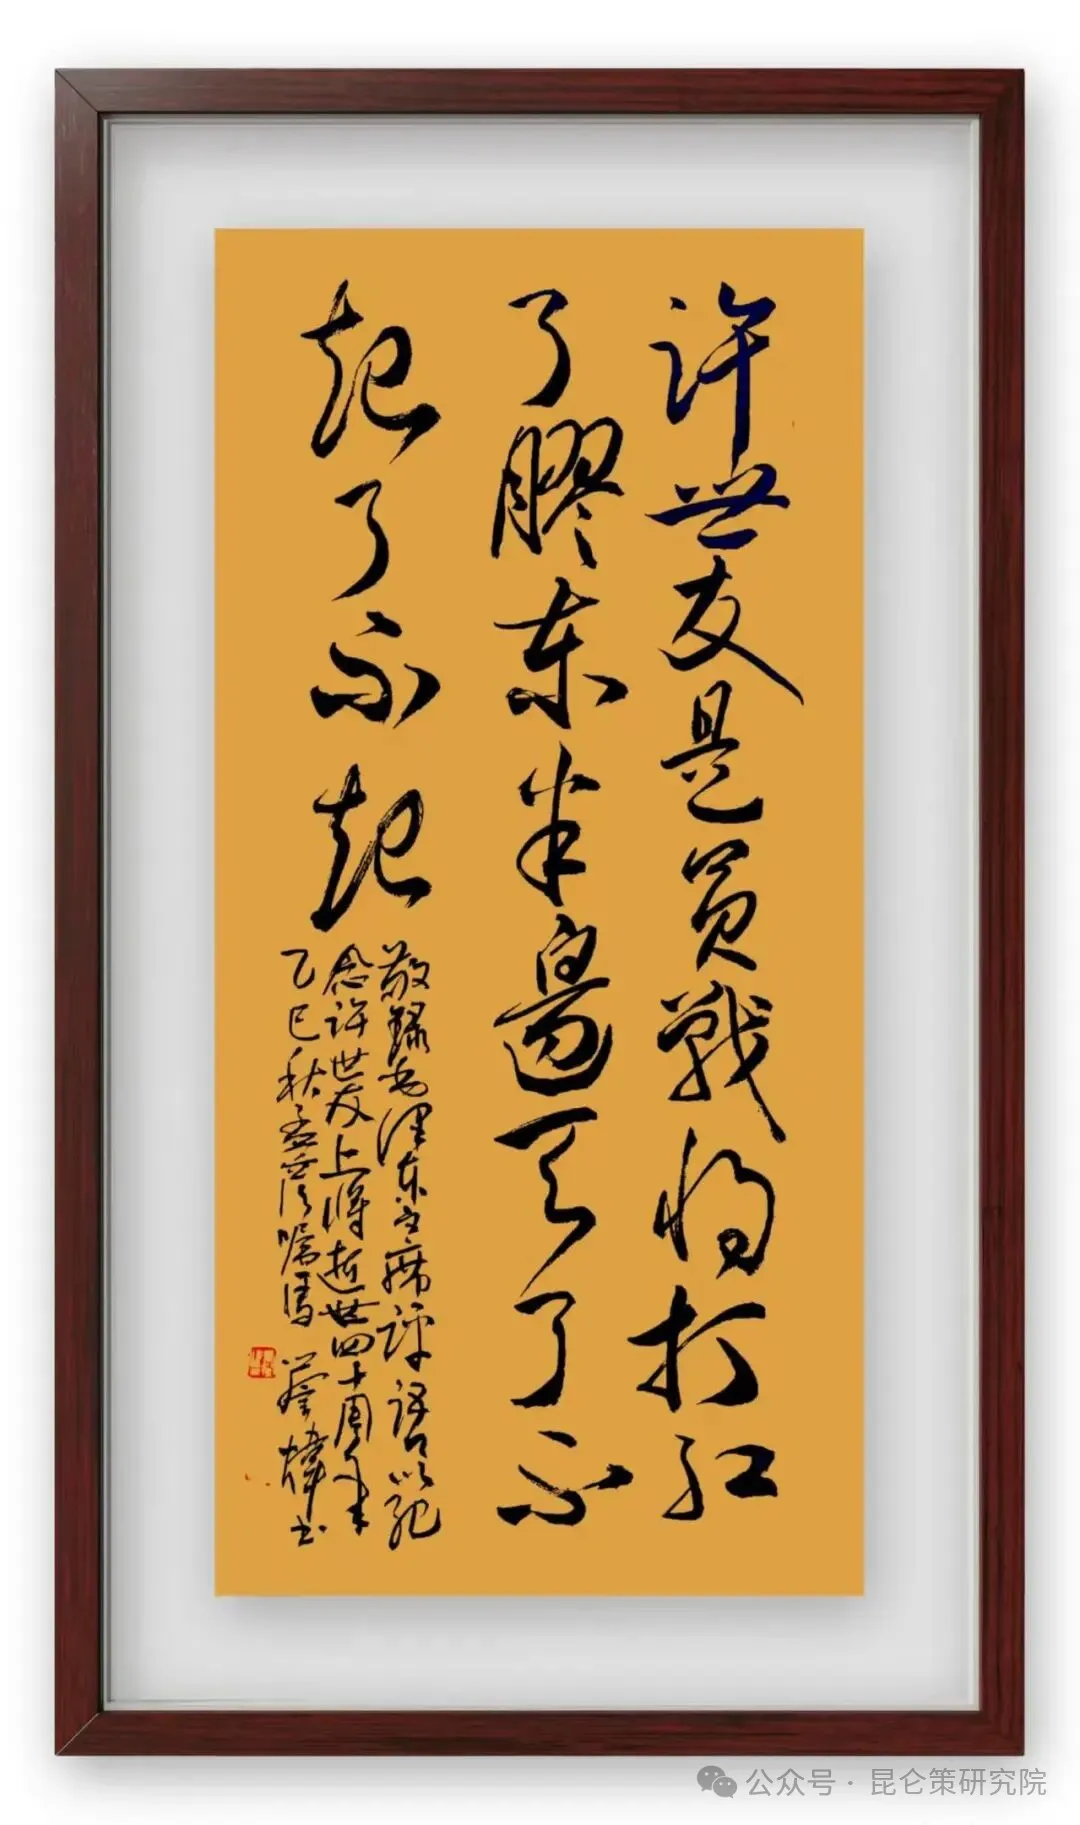 许世友是员戰将打红
了膠东半邉天了不
起了不起
敬録毛泽东主席评语以纪
念许世友上将逝世四十周年
乙巳秋孟彦嘱馬
蔡煒书
公众号·昆仑策研究院